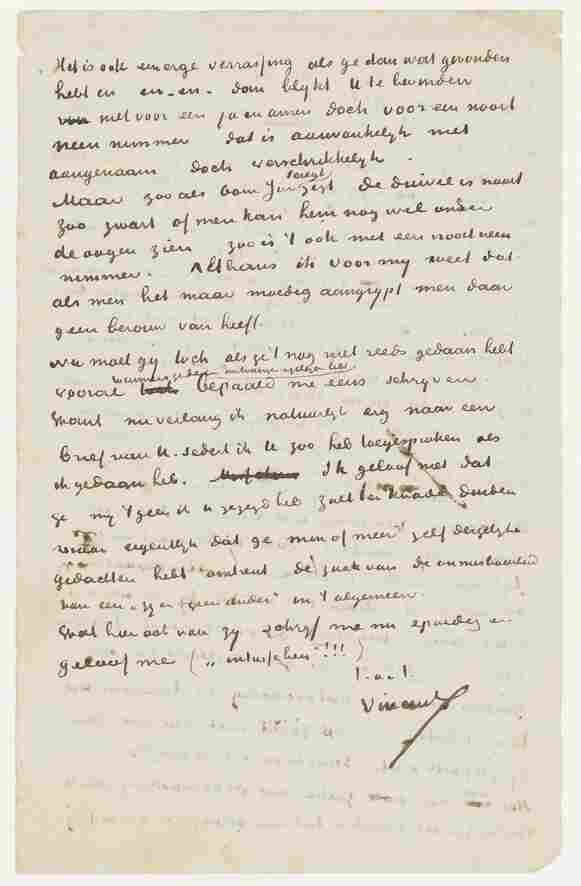 Het is ook een erge verrassing als ge dan wat gevonden
hebt en en - en - dan blijkt U te bevinden
niet voor een ja en amen doch voor een nooit
neen nimmer dat is aanvankelijk niet
aangenaam doch verschrikkelijk.
Maar zooals Oom Jan zegt teregt de duivel is nooit
zoo zwart of men kan hem nog wel onder
de oogen zien zoo is 't ook met een nooit neen
nimmer. Althans ik voor mij weet dat
als men het maar moedig aangrijpt men daar
geen berouw van heeft.
Nu moet gij toch als ge't nog niet reeds gedaan hebt
vooral wanneer ge deze ontvangen hebt
bepaald me eens schrijven.
Want nu verlang ik natuurlijk erg naar een
brief van U. sedert ik U zoo heb toegesproken als
ik gedaan heb. Ik geloof niet dat
ge mij 't geen ik U gezegd heb zult ten kwade duiden
eigentlijk dat ge min of meer zelf dergelijke
gedachten hebt omtrent de zaak van de onmisbaarheid
van een "zij en geen ander" in 't algemeen.
Wat hier ook van zij schrijf me nu spoedig en
geloof me ( „ intusschen" !!! )
t. à. t.
Vincent